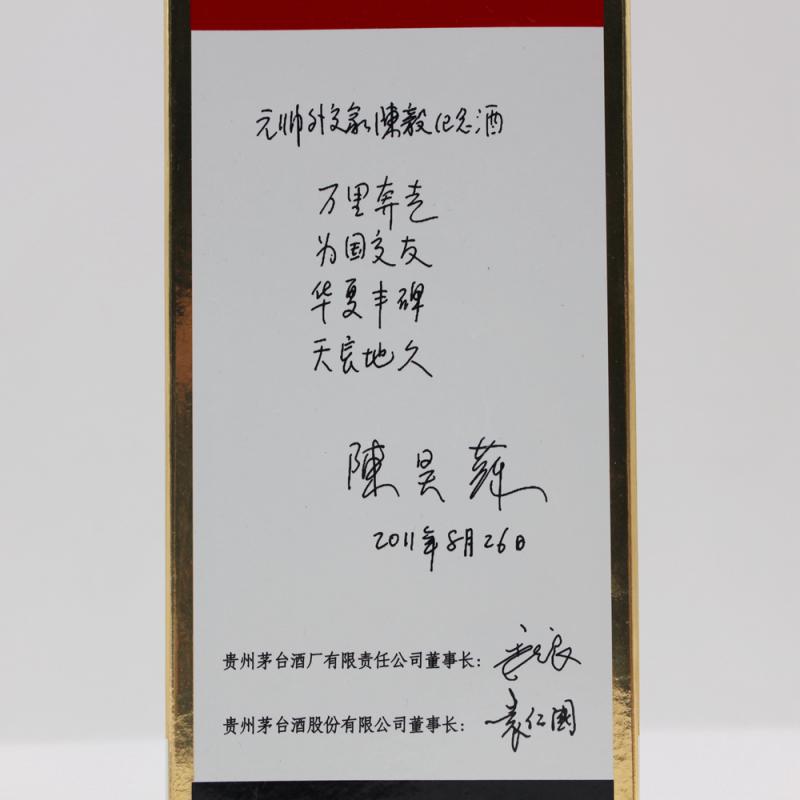 元帅外交家陳毅纪念酒
万里奔走
为国交友
华夏丰碑
天長地久
陳昊蘇
2011年8月26日
贵州茅台酒厂有限责任公司董事长：
贵州茅台酒股份有限公司董事长：袁仁國